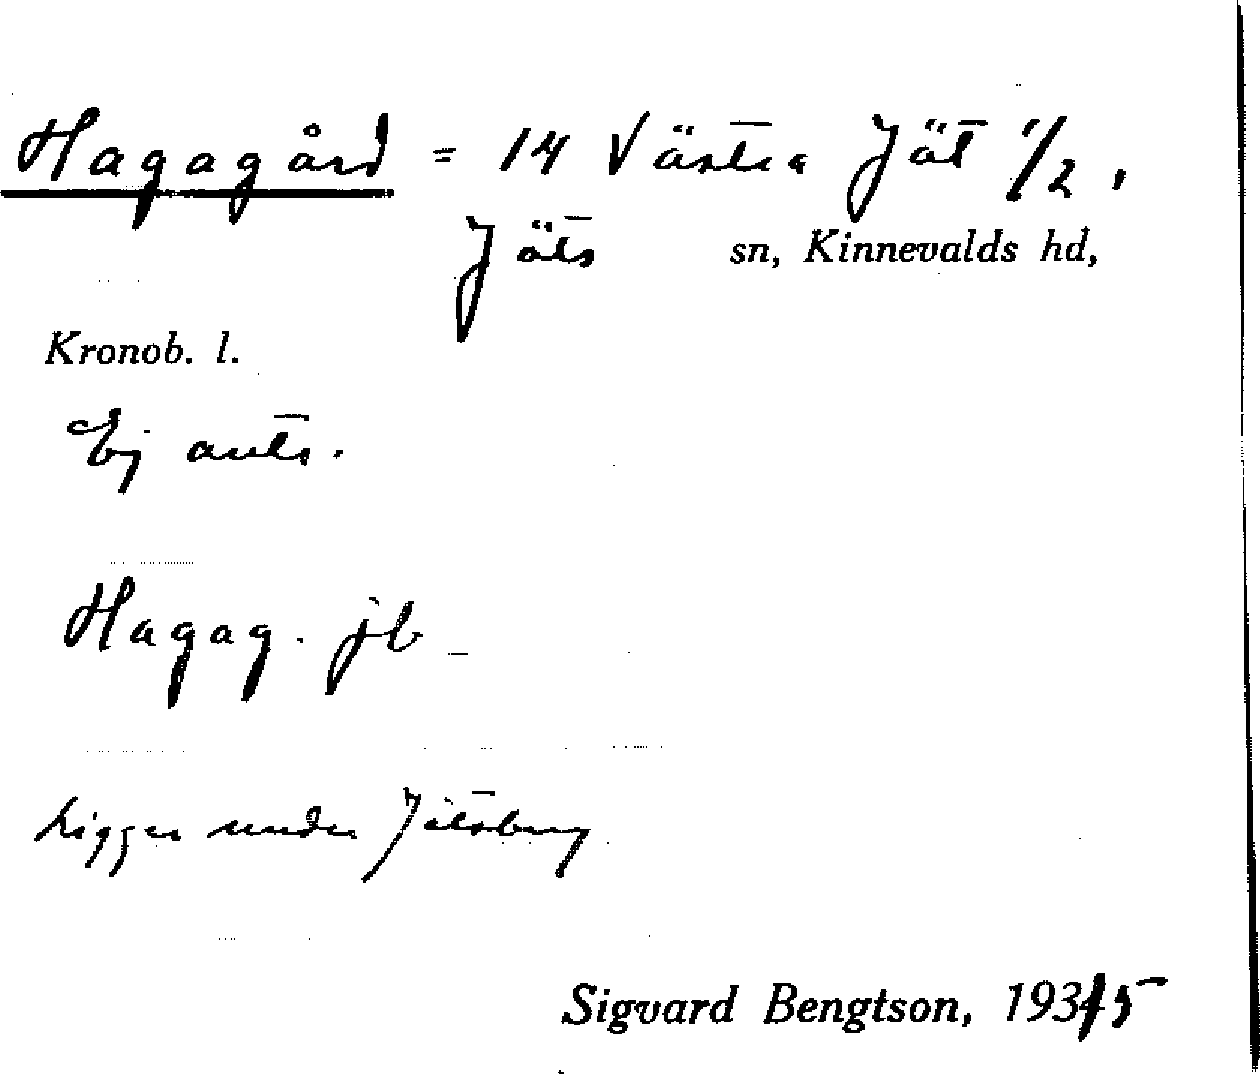 Hagagård = 14 Västra Jät 1/2,
Jäts sn, Kinnevalds hd,
Kronob. l.
Ej ants.
Hagag. jb
Ligger under Jätsberg
Sigvard Bengtson, 1935